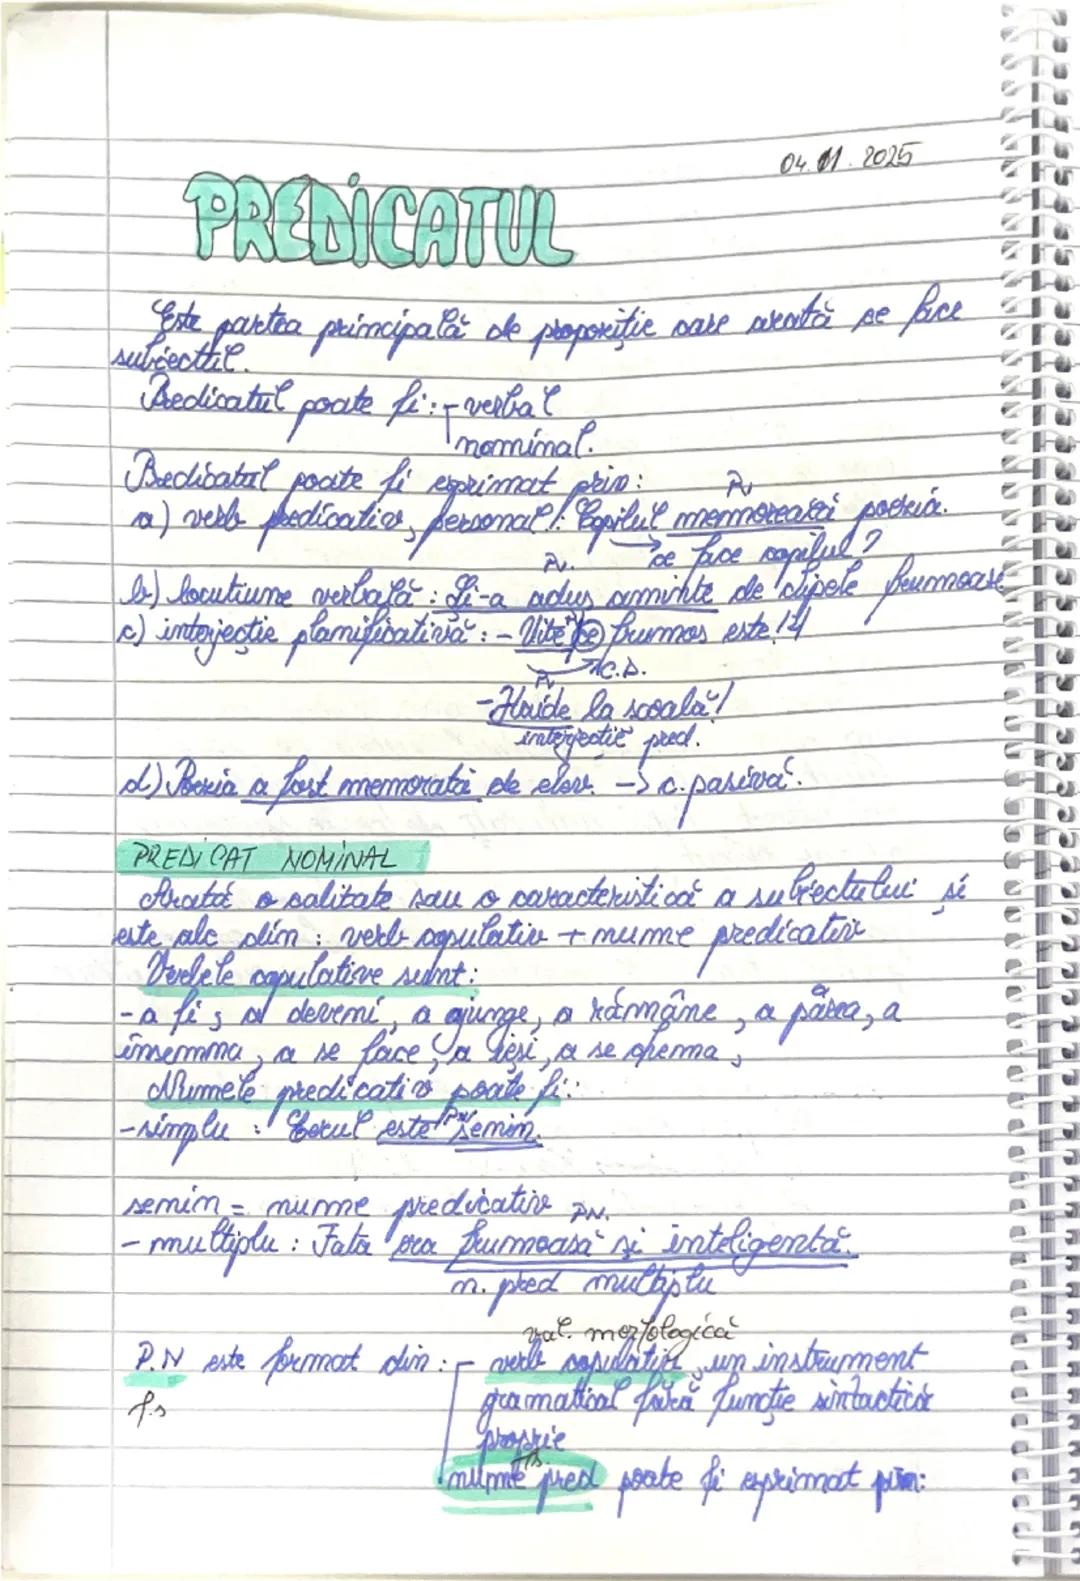 04.11.2025
PREDICATUL
Este partea principală de propoziție care arată ce face
subiectul.
Predicatul poate fi: - verbal
nominal.
Predicatul poate fi exprimat prin:
Pv
a) verb predicativ, personal: Copilul memorează poezia.
Pv. ce face copilul?
b) locutiune verbală: Și-a adus aminte de clipele frumoase
c) interjecție : - Uite ce frumos este!
C.D.
Pv
- Haide la scoală!
interjecție pred.
d) Poezia a fost memorată de elev. -> c. pasivă.
PREDICAT NOMINAL
Arată o calitate sau o caracteristică a subiectului și
este alc din: verb copulativ + nume predicativ
Verbele copulative sunt:
- a fi, a deveni, a ajunge, a rămâne, a părea, a
însemna, a se face, a ieși, a se chema,
Numele predicativ poate fi:
- simplu : Cerul este senin.
PN
senin = nume predicativ
PN.
- multiplu: Fata era frumoasă și inteligentă.
n. pred multiplu
val. morfologică
P.N este format din: - verb copulativ, un instrument
f.s gramatical fără funcție sintactică
proprie
f.s.
nume pred poate fi exprimat prin: